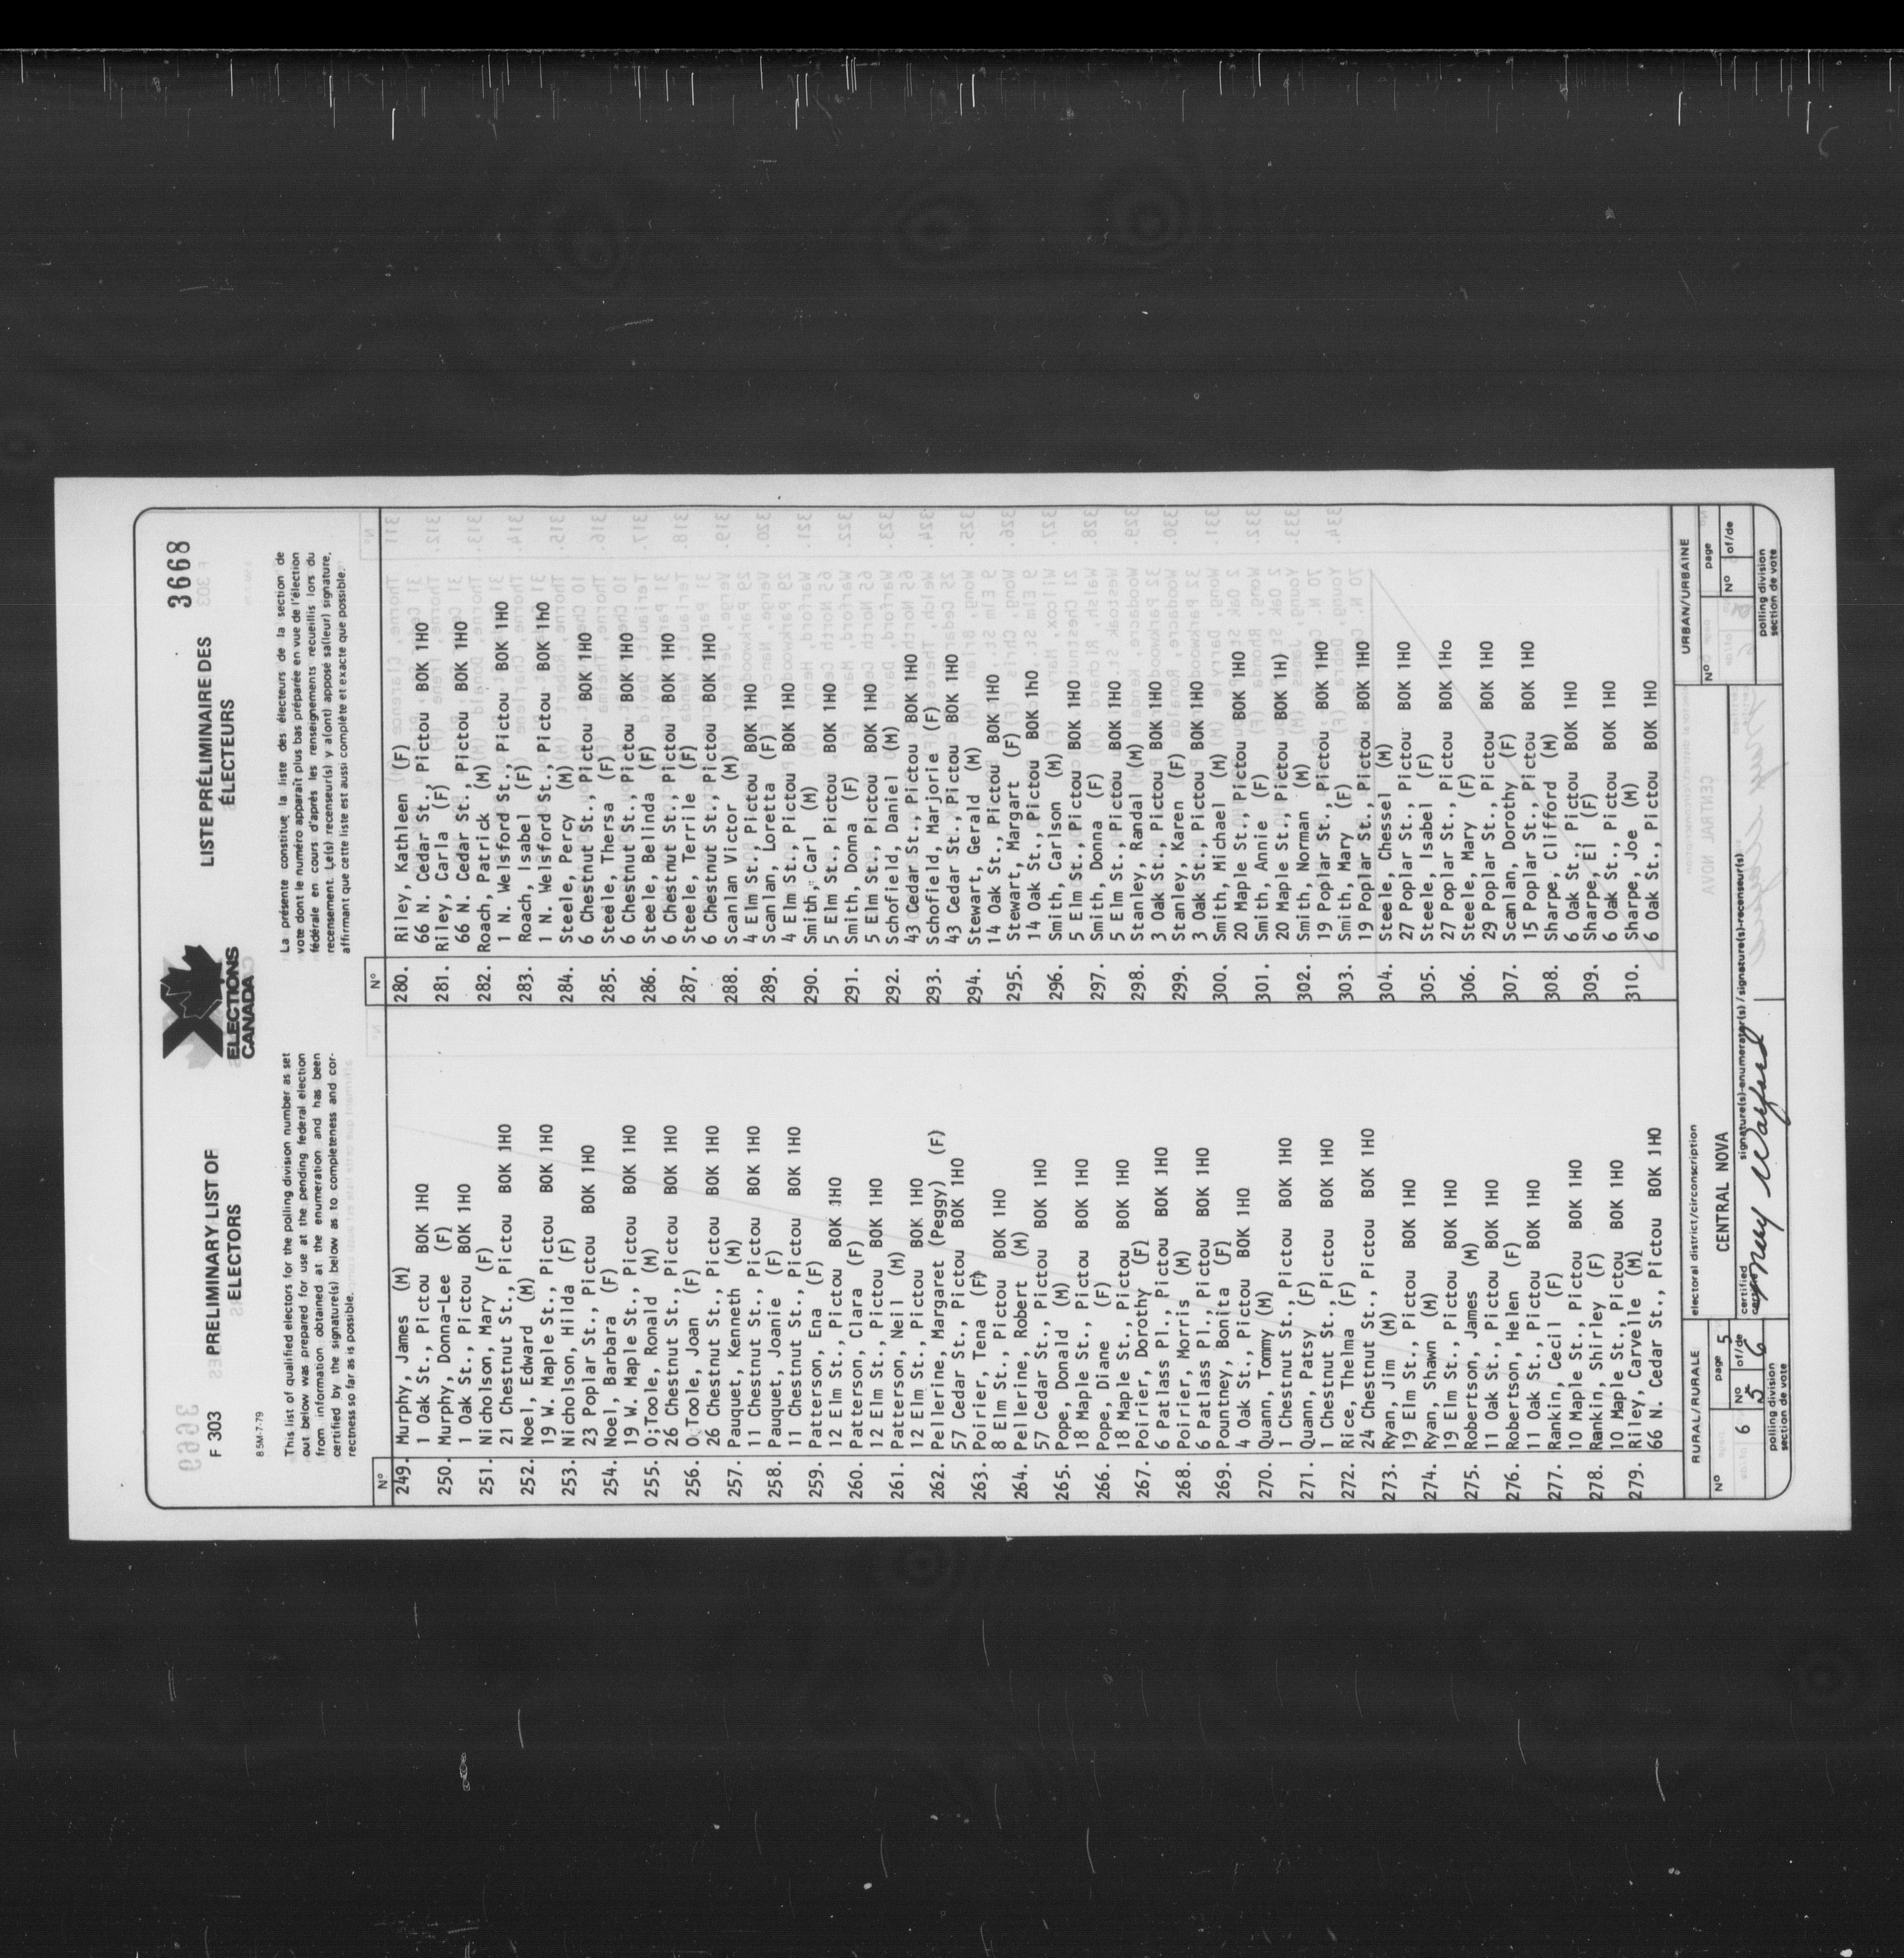 3668
F 303
PRELIMINARY LIST OF
ELECTORS
ELECTIONS
CANADA
LISTE PRÉLIMINAIRE DES
ÉLECTEURS
85M-7-79
This list of qualified electors for the polling division number as set
out below was prepared for use at the pending federal election
from information obtained at the enumeration and has been
certified by the signature(s) below as to completeness and cor-
rectness so far as is possible.
La présente constitue la liste des électeurs de la section de
vote dont le numéro apparaît plus bas préparée en vue de l'élection
fédérale en cours d'après les renseignements recueillis lors du
recensement. Le(s) recenseur(s) y a(ont) apposé sa(leur) signature,
affirmant que cette liste est aussi complète et exacte que possible.
Nº
249. Murphy, James (M)
1 Oak St., Pictou BOK 1HO
250. Murphy, Donna-Lee (F)
1 Oak St., Pictou BOK 1HO
251. Nicholson, Mary (F)
21 Chestnut St., Pictou BOK 1HO
252. Noel, Edward (M)
19 W. Maple St., Pictou BOK 1HO
253. Nicholson, Hilda (F)
23 Poplar St., Pictou BOK 1HO
254. Noel, Barbara (F)
19 W. Maple St., Pictou BOK 1HO
255. O;Toole, Ronald (M)
26 Chestnut St., Pictou BOK 1HO
256. O;Toole, Joan (F)
26 Chestnut St., Pictou BOK 1HO
257. Pauquet, Kenneth (M)
11 Chestnut St., Pictou BOK 1HO
258. Pauquet, Joanie (F)
11 Chestnut St., Pictou BOK 1HO
259. Patterson, Ena (F)
12 Elm St., Pictou BOK 1HO
260. Patterson, Clara (F)
12 Elm St., Pictou BOK 1HO
261. Patterson, Neil (M)
12 Elm St., Pictou BOK 1HO
262. Pellerine, Margaret (Peggy) (F)
57 Cedar St., Pictou BOK 1HO
263. Poirier, Tena (F)
8 Elm St., Pictou BOK 1HO
264. Pellerine, Robert (M)
57 Cedar St., Pictou BOK 1HO
265. Pope, Donald (M)
18 Maple St., Pictou BOK 1HO
266. Pope, Diane (F)
18 Maple St., Pictou BOK 1HO
267. Poirier, Dorothy (F)
6 Patlass Pl., Pictou BOK 1HO
268. Poirier, Morris (M)
6 Patlass Pl., Pictou BOK 1HO
269. Pountney, Bonita (F)
4 Oak St., Pictou BOK 1HO
270. Quann, Tommy (M)
1 Chestnut St., Pictou BOK 1HO
271. Quann, Patsy (F)
1 Chestnut St., Pictou BOK 1HO
272. Rice, Thelma (F)
24 Chestnut St., Pictou BOK 1HO
273. Ryan, Jim (M)
19 Elm St., Pictou BOK 1HO
274. Ryan, Shawn (M)
19 Elm St., Pictou BOK 1HO
275. Robertson, James (M)
11 Oak St., Pictou BOK 1HO
276. Robertson, Helen (F)
11 Oak St., Pictou BOK 1HO
277. Rankin, Cecil (F)
10 Maple St., Pictou BOK 1HO
278. Rankin, Shirley (F)
10 Maple St., Pictou BOK 1HO
279. Riley, Carvelle (M)
66 N. Cedar St., Pictou BOK 1HO
Nº
280. Riley, Kathleen (F)
66 N. Cedar St., Pictou BOK 1HO
281. Riley, Carla (F)
66 N. Cedar St., Pictou BOK 1HO
282. Roach, Patrick (M)
1 N. Welsford St., Pictou BOK 1HO
283. Roach, Isabel (F)
1 N. Welsford St., Pictou BOK 1hO
284. Steele, Percy (M)
6 Chestnut St., Pictou BOK 1HO
285. Steele, Thersa (F)
6 Chestnut St., Pictou BOK 1HO
286. Steele, Belinda (F)
6 Chestnut St., Pictou BOK 1HO
287. Steele, Terrile (F)
6 Chestnut St., Pictou BOK 1HO
288. Scanlan Victor (M)
4 Elm St., Pictou BOK 1HO
289. Scanlan, Loretta (F)
4 Elm St., Pictou BOK 1HO
290. Smith, Carl (M)
5 Elm St., Pictou BOK 1HO
291. Smith, Donna (F)
5 Elm St., Pictou BOK 1HO
292. Schofield, Daniel (M)
43 Cedar St., Pictou BOK 1HO
293. Schofield, Marjorie (F)
43 Cedar St., Pictou BOK 1HO
294. Stewart, Gerald (M)
14 Oak St., Pictou BOK 1HO
295. Stewart, Margart (F)
14 Oak St., Pictou BOK 1hO
296. Smith, Carlson (M)
5 Elm St., Pictou BOK 1HO
297. Smith, Donna (F)
5 Elm St., Pictou BOK 1HO
298. Stanley, Randal (M)
3 Oak St., Pictou BOK 1HO
299. Stanley, Karen (F)
3 Oak St., Pictou BOK 1HO
300. Smith, Michael (M)
20 Maple St., Pictou BOK 1HO
301. Smith, Annie (F)
20 Maple St., Pictou BOK 1H)
302. Smith, Norman (M)
19 Poplar St., Pictou BOK 1HO
303. Smith, Mary (F)
19 Poplar St., Pictou BOK 1HO
304. Steele, Chessel (M)
27 Poplar St., Pictou BOK 1HO
305. Steele, Isabel (F)
27 Poplar St., Pictou BOK 1Ho
306. Steele, Mary (F)
29 Poplar St., Pictou BOK 1HO
307. Scanlan, Dorothy (F)
15 Poplar St., Pictou BOK 1HO
308. Sharpe, Clifford (M)
6 Oak St., Pictou BOK 1HO
309. Sharpe, El (F)
6 Oak St., Pictou BOK 1HO
310. Sharpe, Joe (M)
6 Oak St., Pictou BOK 1HO
RURAL/RURALE
Nº 6
page 5
Nº 5 of/de 6
polling division
section de vote
electoral district/circonscription
CENTRAL NOVA
certified
certifié
signature(s)-enumerator(s) / signature(s)-recenseur(s)
Mary Warford
URBAN/URBAINE
Nº
page
Nº of/de
polling division
section de vote